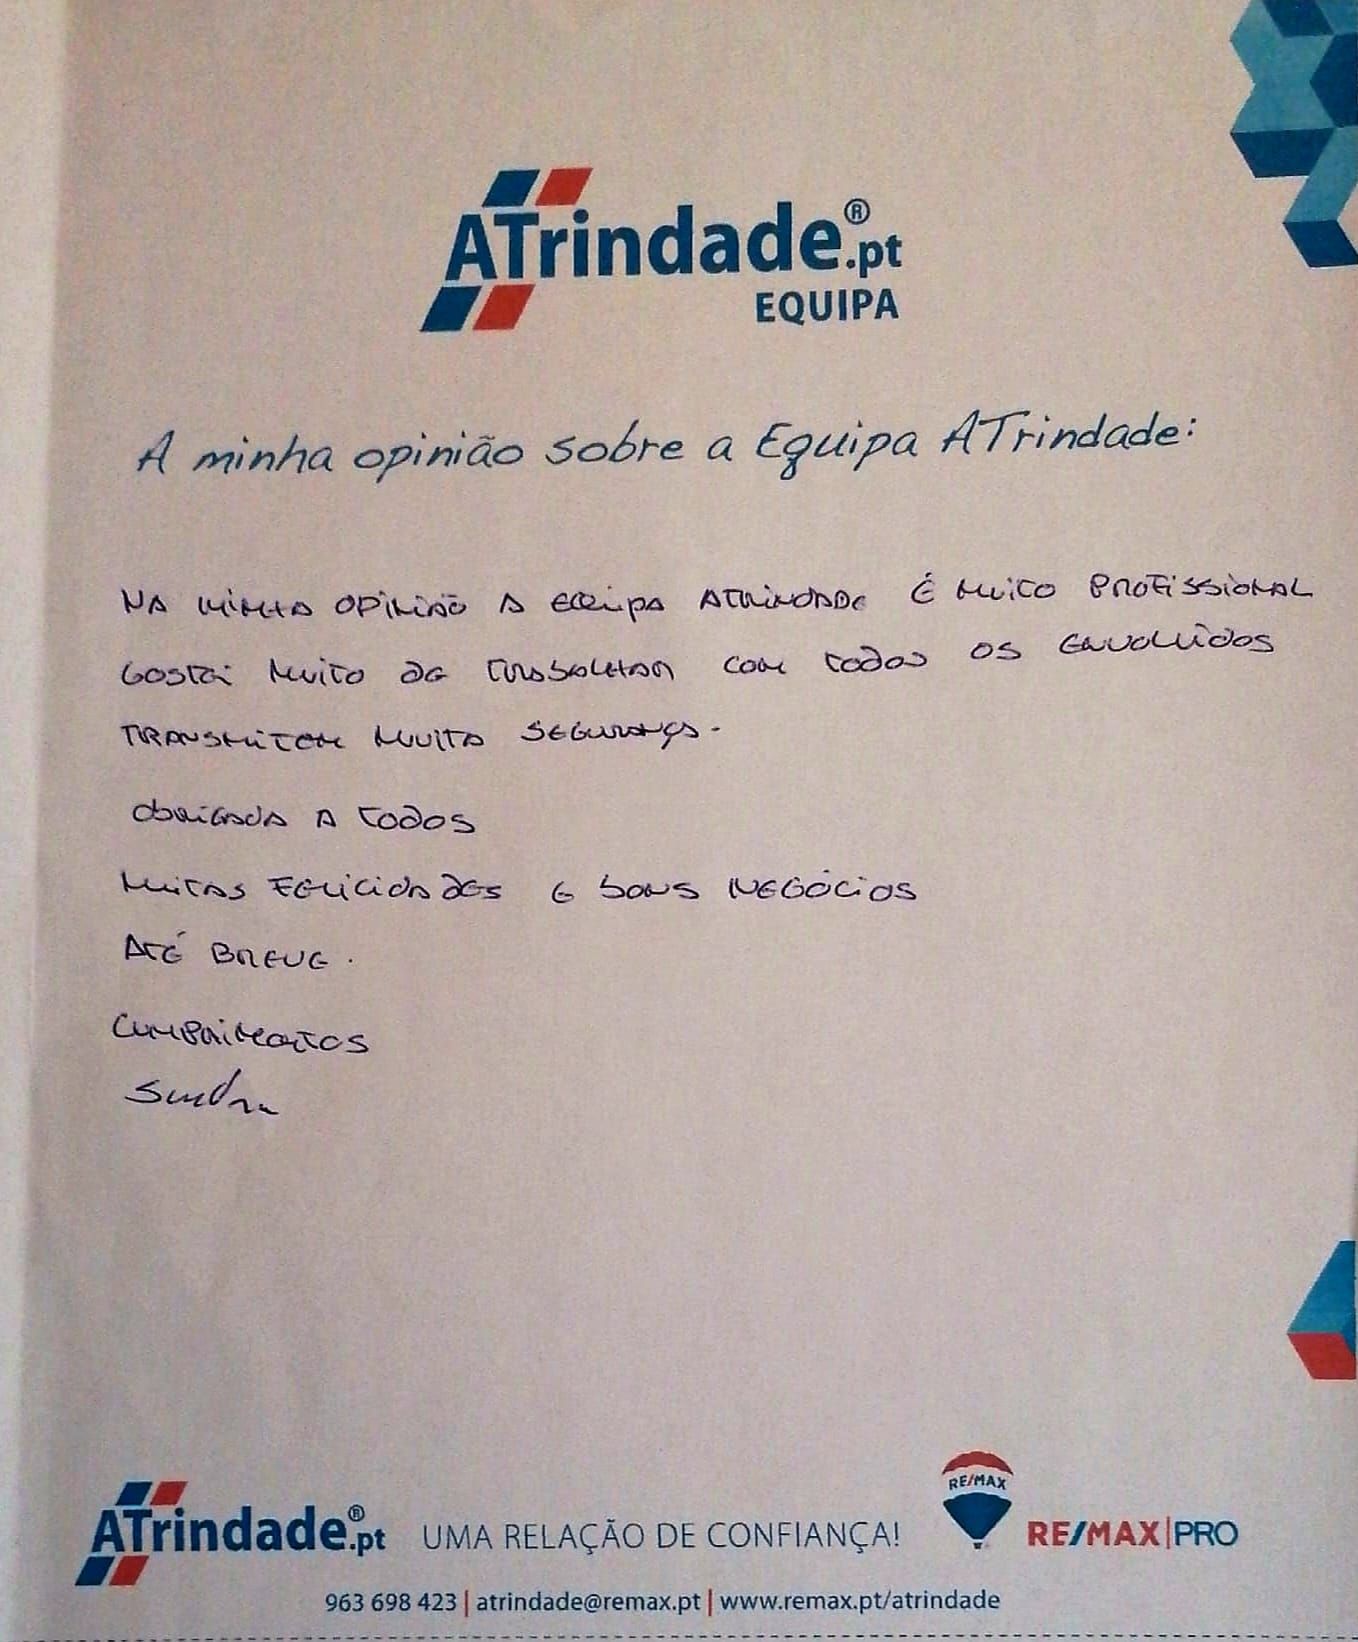 ATrindade®.pt
EQUIPA
A minha opinião sobre a Equipa ATrindade:
NA MINHA OPINIÃO A EQUIPA ATRINDADE É MUITO PROFISSIONAL
GOSTEI MUITO DE TRABALHAR COM TODOS OS ENVOLVIDOS
TRANSMITEM MUITA SEGURANÇA.
OBRIGADA A TODOS
MUITAS FELICIDADES E BONS NEGÓCIOS
ATÉ BREVE.
CUMPRIMENTOS
Sandra
RE/MAX
ATrindade®.pt UMA RELAÇÃO DE CONFIANÇA! RE/MAX|PRO
963 698 423 | atrindade@remax.pt | www.remax.pt/atrindade